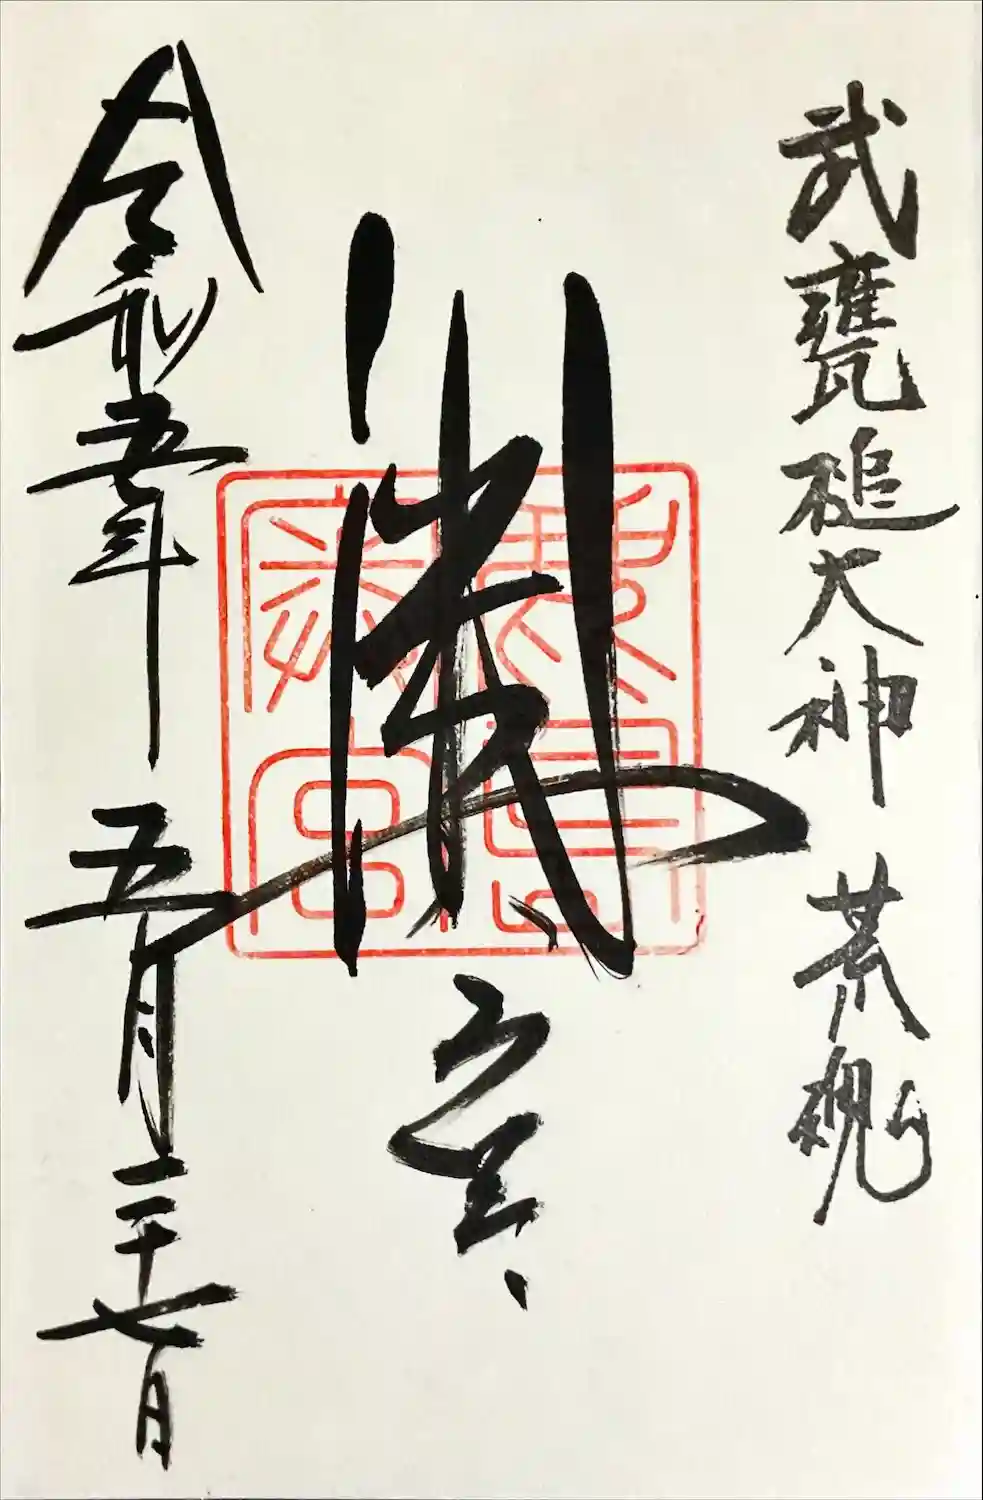 武甕槌大神 荒魂
奥宮
令和五年 五月二十七日